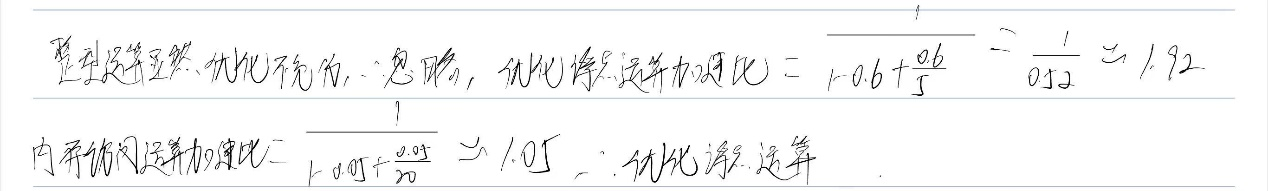 整型运算显然优化不充份,∴忽略,优化浮点运算加速比 = 1/(1-0.6+0.6/5) = 1/0.52 ≃ 1.92
内存访问运算加速比 = 1/(1-0.05+0.05/20) ≃ 1.05 ∴优化浮点运算